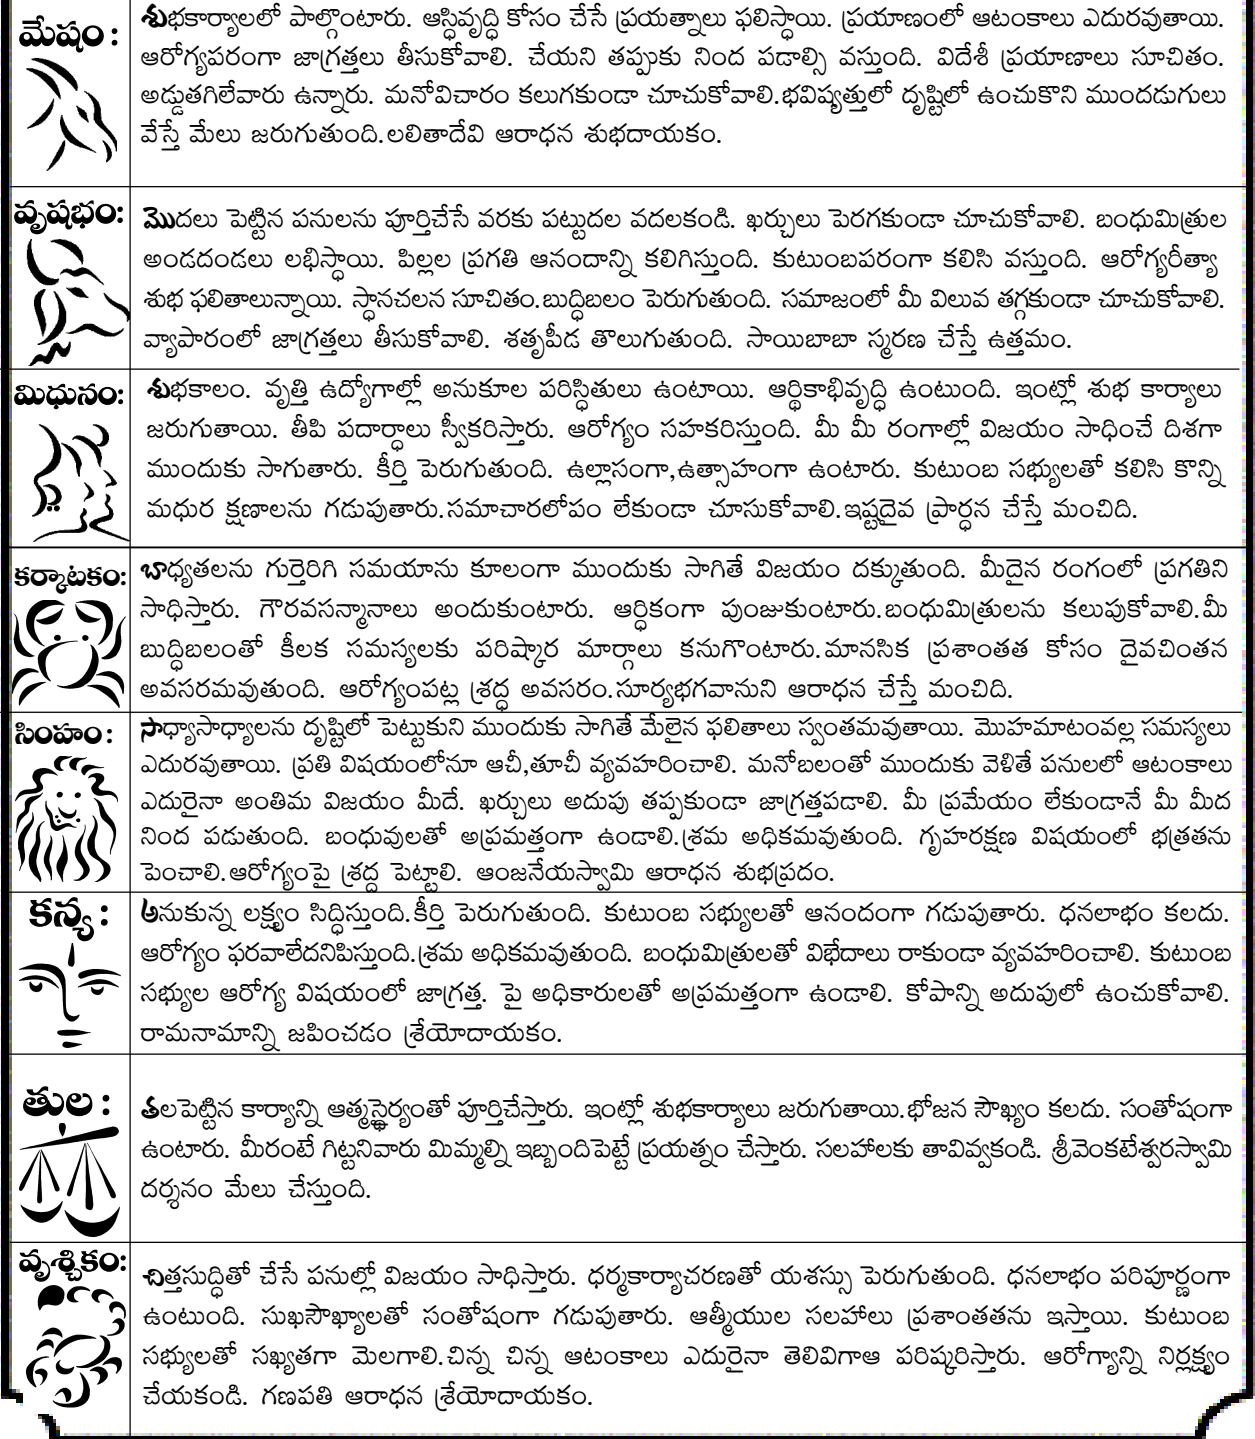 మేషం :
శుభకార్యాలలో పాల్గొంటారు. ఆస్తివృద్ధి కోసం చేసే ప్రయత్నాలు ఫలిస్తాయి. ప్రయాణంలో ఆటంకాలు ఎదురవుతాయి.
ఆరోగ్యపరంగా జాగ్రత్తలు తీసుకోవాలి. చేయని తప్పుకు నింద పడాల్సి వస్తుంది. విదేశీ ప్రయాణాలు సూచితం.
అడ్డుతగిలేవారు ఉన్నారు. మనోవిచారం కలుగకుండా చూచుకోవాలి.భవిష్యత్తులో దృష్టిలో ఉంచుకొని ముందడుగులు
వేస్తే మేలు జరుగుతుంది.లలితాదేవి ఆరాధన శుభదాయకం.
వృషభం:
మొదలు పెట్టిన పనులను పూర్తిచేసే వరకు పట్టుదల వదలకండి. ఖర్చులు పెరగకుండా చూచుకోవాలి. బంధుమిత్రుల
అండదండలు లభిస్తాయి. పిల్లల ప్రగతి ఆనందాన్ని కలిగిస్తుంది. కుటుంబపరంగా కలిసి వస్తుంది. ఆరోగ్యరీత్యా
శుభ ఫలితాలున్నాయి. స్థానచలన సూచితం.బుద్ధిబలం పెరుగుతుంది. సమాజంలో మీ విలువ తగ్గకుండా చూచుకోవాలి.
వ్యాపారంలో జాగ్రత్తలు తీసుకోవాలి. శతృపీడ తొలుగుతుంది. సాయిబాబా స్మరణ చేస్తే ఉత్తమం.
మిధునం:
శుభకాలం. వృత్తి ఉద్యోగాల్లో అనుకూల పరిస్థితులు ఉంటాయి. ఆర్థికాభివృద్ధి ఉంటుంది. ఇంట్లో శుభ కార్యాలు
జరుగుతాయి. తీపి పదార్థాలు స్వీకరిస్తారు. ఆరోగ్యం సహకరిస్తుంది. మీ మీ రంగాల్లో విజయం సాధించే దిశగా
ముందుకు సాగుతారు. కీర్తి పెరుగుతుంది. ఉల్లాసంగా,ఉత్సాహంగా ఉంటారు. కుటుంబ సభ్యులతో కలిసి కొన్ని
మధుర క్షణాలను గడుపుతారు.సమాచారలోపం లేకుండా చూసుకోవాలి.ఇష్టదైవ ప్రార్థన చేస్తే మంచిది.
కర్కాటకం:
బాధ్యతలను గుర్తెరిగి సమయాను కూలంగా ముందుకు సాగితే విజయం దక్కుతుంది. మీదైన రంగంలో ప్రగతిని
సాధిస్తారు. గౌరవసన్మానాలు అందుకుంటారు. ఆర్థికంగా పుంజుకుంటారు.బంధుమిత్రులను కలుపుకోవాలి.మీ
బుద్ధిబలంతో కీలక సమస్యలకు పరిష్కార మార్గాలు కనుగొంటారు.మానసిక ప్రశాంతత కోసం దైవచింతన
అవసరమవుతుంది. ఆరోగ్యంపట్ల శ్రద్ధ అవసరం.సూర్యభగవానుని ఆరాధన చేస్తే మంచిది.
సింహం :
సాధ్యాసాధ్యాలను దృష్టిలో పెట్టుకుని ముందుకు సాగితే మేలైన ఫలితాలు స్వంతమవుతాయి. మొహమాటంవల్ల సమస్యలు
ఎదురవుతాయి. ప్రతి విషయంలోనూ ఆచీ,తూచీ వ్యవహరించాలి. మనోబలంతో ముందుకు వెళితే పనులలో ఆటంకాలు
ఎదురైనా అంతిమ విజయం మీదే. ఖర్చులు అదుపు తప్పకుండా జాగ్రత్తపడాలి. మీ ప్రమేయం లేకుండానే మీ మీద
నింద పడుతుంది. బంధువులతో అప్రమత్తంగా ఉండాలి.శ్రమ అధికమవుతుంది. గృహరక్షణ విషయంలో భత్రతను
పెంచాలి.ఆరోగ్యంపై శ్రద్ద పెట్టాలి. ఆంజనేయస్వామి ఆరాధన శుభప్రదం.
కన్య :
అనుకున్న లక్ష్యం సిద్ధిస్తుంది.కీర్తి పెరుగుతుంది. కుటుంబ సభ్యులతో ఆనందంగా గడుపుతారు. ధనలాభం కలదు.
ఆరోగ్యం ఫరవాలేదనిపిస్తుంది.శ్రమ అధికమవుతుంది. బంధుమిత్రులతో విభేదాలు రాకుండా వ్యవహరించాలి. కుటుంబ
సభ్యుల ఆరోగ్య విషయంలో జాగ్రత్త. పై అధికారులతో అప్రమత్తంగా ఉండాలి. కోపాన్ని అదుపులో ఉంచుకోవాలి.
రామనామాన్ని జపించడం శ్రేయోదాయకం.
తుల :
తలపెట్టిన కార్యాన్ని ఆత్మస్థైర్యంతో పూర్తిచేస్తారు. ఇంట్లో శుభకార్యాలు జరుగుతాయి.భోజన సౌఖ్యం కలదు. సంతోషంగా
ఉంటారు. మీరంటే గిట్టనివారు మిమ్మల్ని ఇబ్బందిపెట్టే ప్రయత్నం చేస్తారు. సలహాలకు తావివ్వకండి. శ్రీవెంకటేశ్వరస్వామి
దర్శనం మేలు చేస్తుంది.
వృశ్చికం:
చిత్తసుద్ధితో చేసే పనుల్లో విజయం సాధిస్తారు. ధర్మకార్యాచరణతో యశస్సు పెరుగుతుంది. ధనలాభం పరిపూర్ణంగా
ఉంటుంది. సుఖసౌఖ్యాలతో సంతోషంగా గడుపుతారు. ఆత్మీయుల సలహాలు ప్రశాంతతను ఇస్తాయి. కుటుంబ
సభ్యులతో సఖ్యతగా మెలగాలి.చిన్న చిన్న ఆటంకాలు ఎదురైనా తెలివిగాఆ పరిష్కరిస్తారు. ఆరోగ్యాన్ని నిర్లక్ష్యం
చేయకండి. గణపతి ఆరాధన శ్రేయోదాయకం.